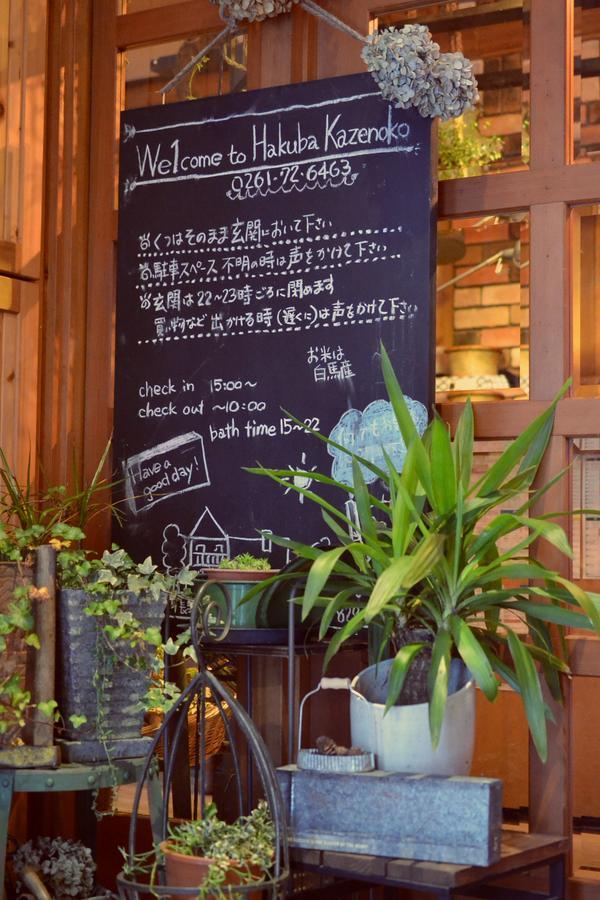 We1come to Hakuba Kazenoko
0261-72-6463
※くつはそのまま玄関において下さい
※駐車スペース不明の時は声をかけて下さい
※玄関は22~23時ごろに閉めます
買い物など出かける時(遅くに)は声をかけて下さい
お米は
白馬産
check in 15:00~
check out ~10:00
bath time 15~22
Have a
good day!